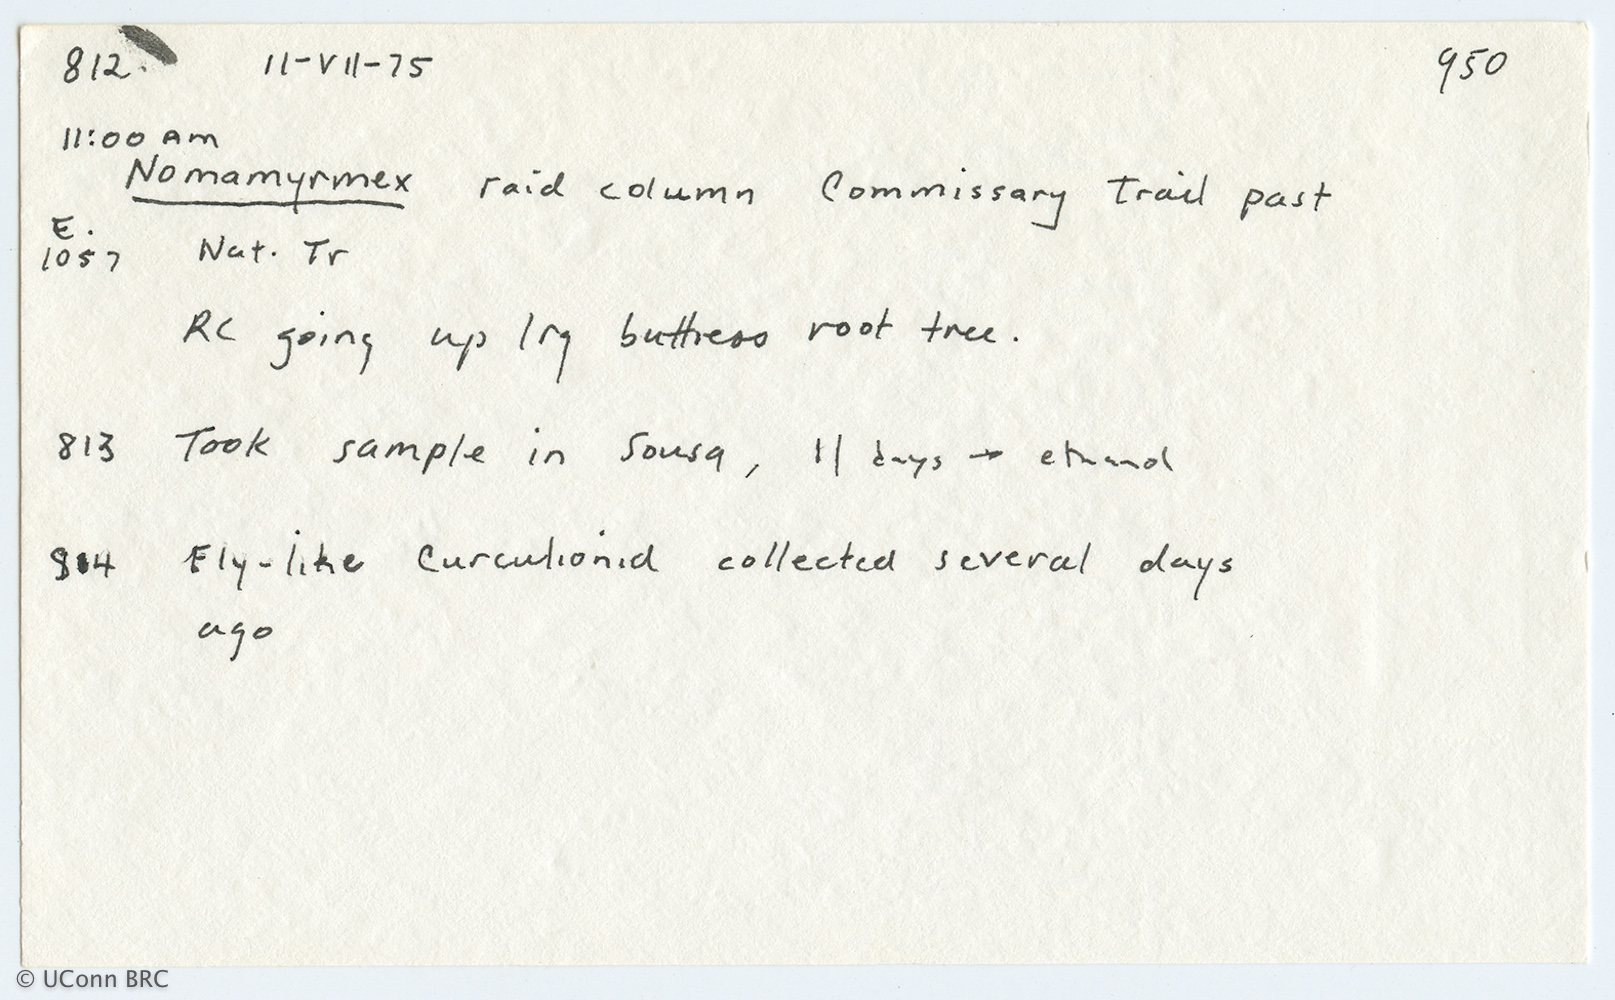 812. 11-VII-75 950
11:00 AM
Nomamyrmex raid column Commissary Trail past
E.
1057 Nat. Tr
RC going up lrg buttress root tree.
813 Took sample in Sousa, 11 days → ethanol
814 Fly-like Curculionid collected several days
ago
© UConn BRC